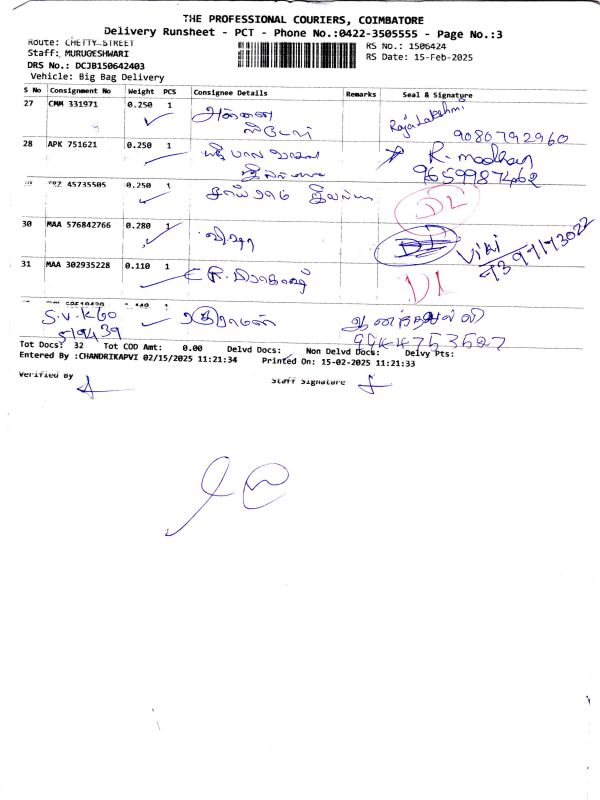 THE PROFESSIONAL COURIERS, COIMBATORE
Delivery Runsheet - PCT - Phone No.:0422-3505555 - Page No.:3
Route: CHETTY STREET
RS No.: 1506424
Staff: MURUGESHWARI
RS Date: 15-Feb-2025
DRS No.: DCJB150642403
Vehicle: Big Bag Delivery
S No Consignment No Weight PCS Consignee Details Remarks Seal & Signature
27 CMM 331971 0.250 1 அன்னை Rajalakshmi
9080792960
28 APK 751621 0.250 1 R. madhan
9659987462
45735505 0.250 1 சாய்ராம் DL
30 MAA 576842766 0.280 1 Viki
31 MAA 302935228 0.110 1 R. பிரகாஷ் DL
S.V.K60 ரகுராமன்
519439 9944753527
Tot Docs: 32 Tot COD Amt: 0.00 Delvd Docs: Non Delvd Docs: Delvy Pts:
Entered By :CHANDRIKAPVI 02/15/2025 11:21:34 Printed On: 15-02-2025 11:21:33
Verified By Staff Signature